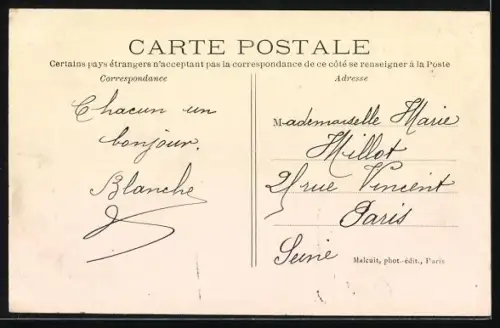 CARTE POSTALE
Certains pays étrangers n'acceptant pas la correspondance de ce côté se renseigner à la Poste
Correspondance
Chacun un
bonjour.
Blanche
Adresse
Mademoiselle Marie
Millot
21 rue Vincent
Paris
Seine
Malcuit, phot.-édit., Paris